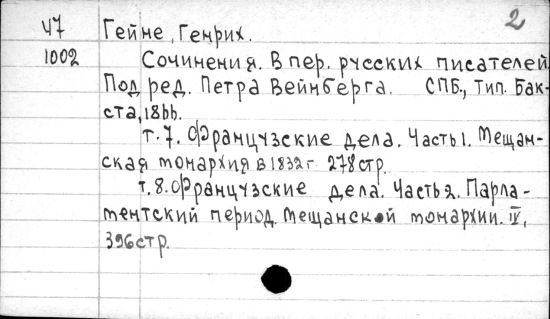 2
47 Гейне, Генрих.
1002 Сочинения. В пер. русских писателей
Под ред. Петра Вейнберга. СПБ., Тип. Бак-
ста, 1866.
т. 7. Французские дела. Часть 1. Мещан-
ская монархия в 1832 г. 278 стр.
т. 8. Французские дела. Часть 2. Парла-
ментский период мещанской монархии. IV,
396 стр.